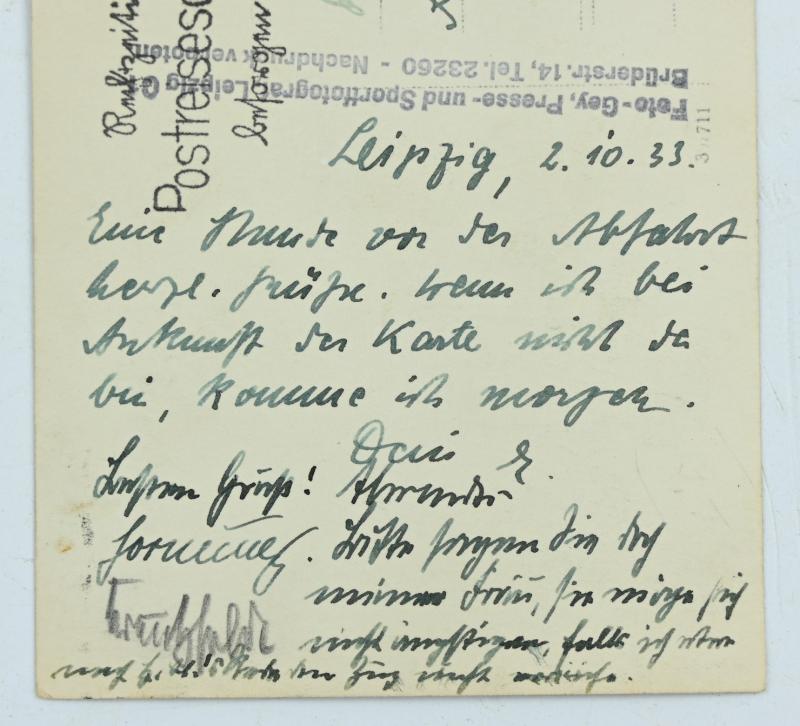 Postresese
Foto-Gey, Presse- und Sportfotograf, Leipzig
Brüderstr. 14, Tel. 23260 - Nachdruck verboten
Leipzig, 2.10.33.
Eine Stunde vor der Abfahrt
herzl. Grüße. Wenn ich bei
Ankunft der Karte nicht da
bin, komme ich morgen.
Dein
Besten Gruß!
Bitte sagen Sie doch
meiner Frau, sie möge sich
nicht ängstigen, falls ich etwa
nach Rede den Zug nicht erreiche.